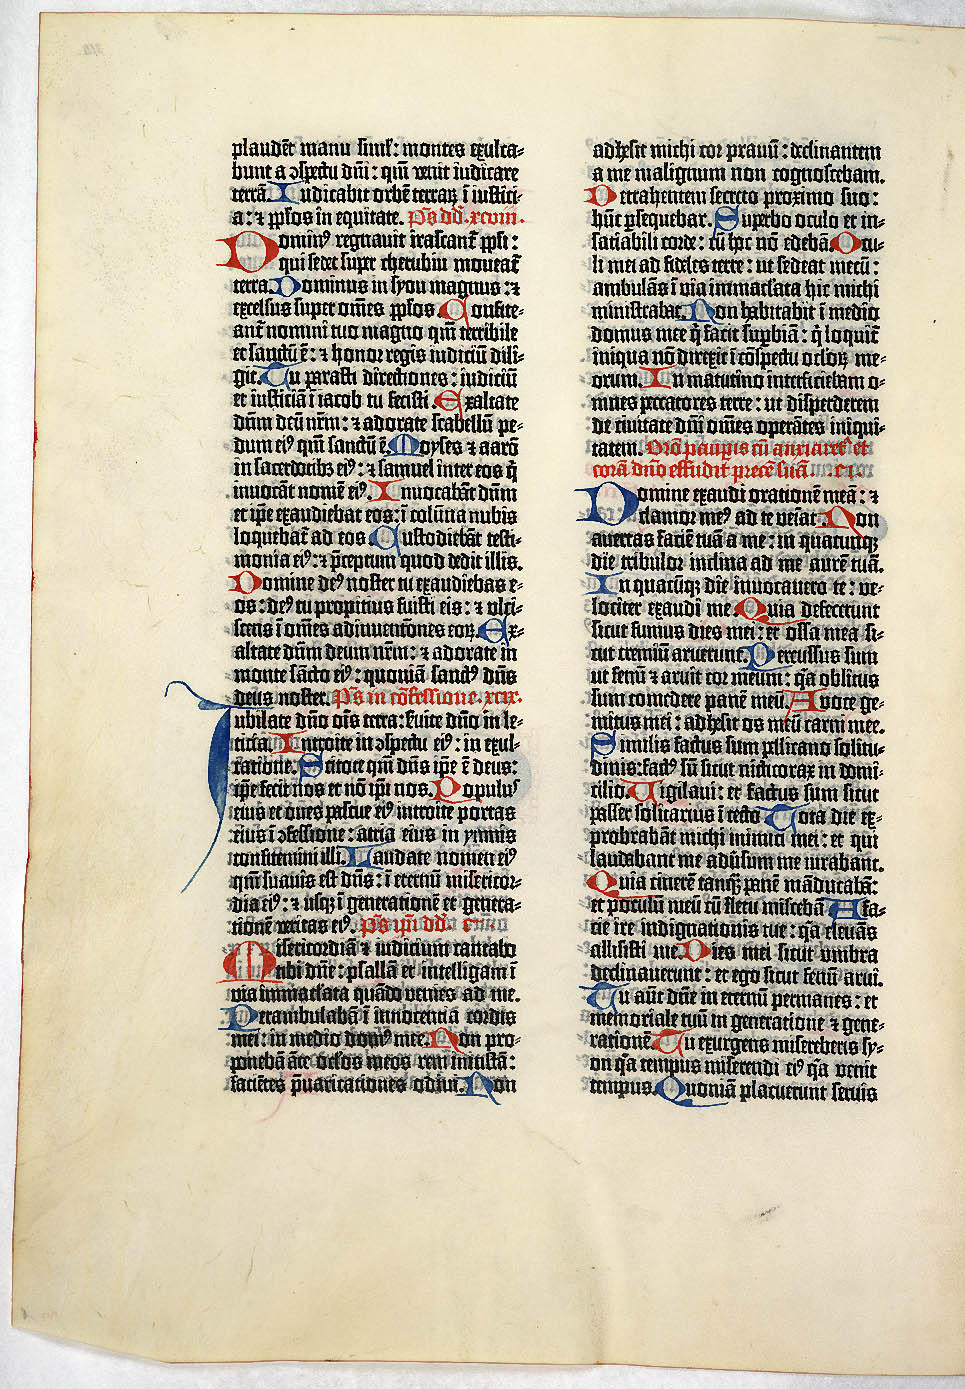 plaudēt manu simĺ: montes exulta-
bunt a ɔspectu dñi: qm̄ venit iudicare
terrā. Iudicabit orbē terraꝝ ī iustici-
a: ⁊ pp̄los in equitate. Ps̄ dd̄. xcviii.
Dominꝰ regnavit irascant̄ ppl̄i:
qui sedet super cherubin moveat̄
terra. Dominus in syon magnus: ⁊
excelsus super om̄es pp̄los. Confite-
ant̄ nomini tuo magno qm̄ terribile
et sanctū ē: ⁊ honor regis iudiciū dili-
git. Tu parasti directiones: iudiciū
et iusticiā ī iacob tu fecisti. Exaltate
dn̄m deū nr̄m: ⁊ adorate scabellū pe-
dum eiꝰ qm̄ sanctū ē. Moyses ⁊ aarō
in sacerdotibꝫ eiꝰ: ⁊ samuel inter eos q̄
invocāt nomē eiꝰ. Invocabāt dn̄m
et ip̄e exaudiebat eos: ī colūna nubis
loquebat̄ ad eos. Custodiebāt testi-
monia eiꝰ: ⁊ p̄ceptum quod dedit illis.
Domine deꝰ noster tu exaudiebas e-
os: deꝰ tu propitius fuisti eis: ⁊ ulci-
scens ī om̄es adinventōnes eoꝝ. Ex-
altate dn̄m deum nr̄m: ⁊ adorate in
monte sācto eiꝰ: quoniā sanctꝰ dn̄s
deus noster. Ps̄ in cōfessione. xcix.
Iubilate dn̄o om̄s terra: ẜuite dn̄o in le-
ticia. Introite in ɔspectu eiꝰ: in exul-
tatione. Scitote qm̄ dn̄s ip̄e ē deus:
ip̄e fecit nos et nō ip̄i nos. Populuꝰ
eius et oves pascue eiꝰ introite portas
eius ī ɔfessione: atria eius in ymnis
confitemini illi. Laudate nomen eiꝰ
qm̄ suavis est dn̄s: ī eternū misericor-
dia eiꝰ: ⁊ usqꝫ ī generationē et genera-
tionē veritas eiꝰ. Ps̄ ip̄i dd̄. c.
Misericordiā ⁊ iudicium cantabo
tibi dn̄e: psallā et intelligam ī
via immaculata quādo venies ad me.
Perambulabā ī innocentia cordis
mei: in medio domꝰ mee. Non pro-
ponebā āte oclōs meos rem iniustā:
faciētes p̄varicationes odivi. Non
adhesit michi cor pravū: declinantem
a me malignum non cognoscebam.
Detrahentem secreto proximo suo:
hūc ꝑsequebar. Superbo oculo et in-
satiabili corde: cū hoc nō edebā. Ocu-
li mei ad fideles terre: ut sedeāt mecū:
ambulās ī via immaclata hic michi
ministrabat. Non habitabit ī medio
domus mee q̄ facit suꝑbiā: q̄ loquit̄
iniqua nō direxit ī cōspectu oclōꝝ me-
orum. In matutino interficiebam o-
mnes peccatores terre: ut disperderem
de civitate dn̄i om̄es operātes iniqui-
tatem. Orō pauꝑis cū anxiaret̄ et
corā dn̄o effudit precē suā. ci.
Domine exaudi orationē meā: ⁊
clamor meꝰ ad te veniat. Non
avertas faciē tuā a me: in quacunqꝫ
die tribulor inclina ad me aurē tuā.
In quacūqꝫ die invocavero te: ve-
lociter exaudi me. Quia defecerunt
sicut fumus dies mei: et ossa mea si-
cut cremiū aruerunt. Percussus sum
ut fenū ⁊ aruit cor meum: qā oblitus
sum comedere panē meū. A voce ge-
mitus mei: adhesit os meū carni mee.
Similis factus sum pellicano solitu-
dinis: factꝰ sū sicut nicticorax in domi-
cilio. Vigilavi: et factus sum sicut
passer solitarius ī tecto. Tota die ex-
probrabāt michi inimici mei: et qui
laudabant me adv̄sum me iurabant.
Quia cinerē tanqꝫ panē māducabā:
et poculū meū cū fletu miscebā. A fa-
cie ire indignationis tue: qā elevās
allisisti me. Dies mei sicut umbra
declinaverunt: et ego sicut fenū arui.
Tu aut̄ dn̄e in eternū permanes: et
memoriale tuū in generatione ⁊ gene-
rationē. Tu exurgens misereberis sy-
on qā tempus miserendi eiꝰ qā venit
tempus. Quoniā placuerunt servis